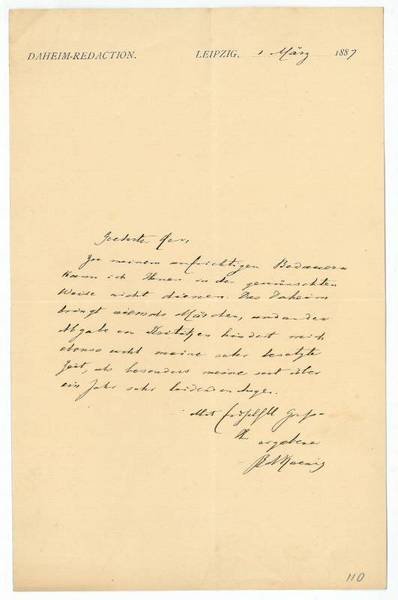 DAHEIM-REDACTION. LEIPZIG. 1 März 1887
Geehrter Herr,
Zu meinem aufrichtigen Bedauern
kann ich Ihnen in der gewünschten
Weise nicht dienen. Das Daheim
bringt niemals Märchen, und an der
Abgabe von hindert mich
ebenso wohl meine sehr besetzte
Zeit, als besonders meine seit über
ein Jahr sehr leidenden Augen.
Mit Gruß
Ihr ergebener
Koenig
110